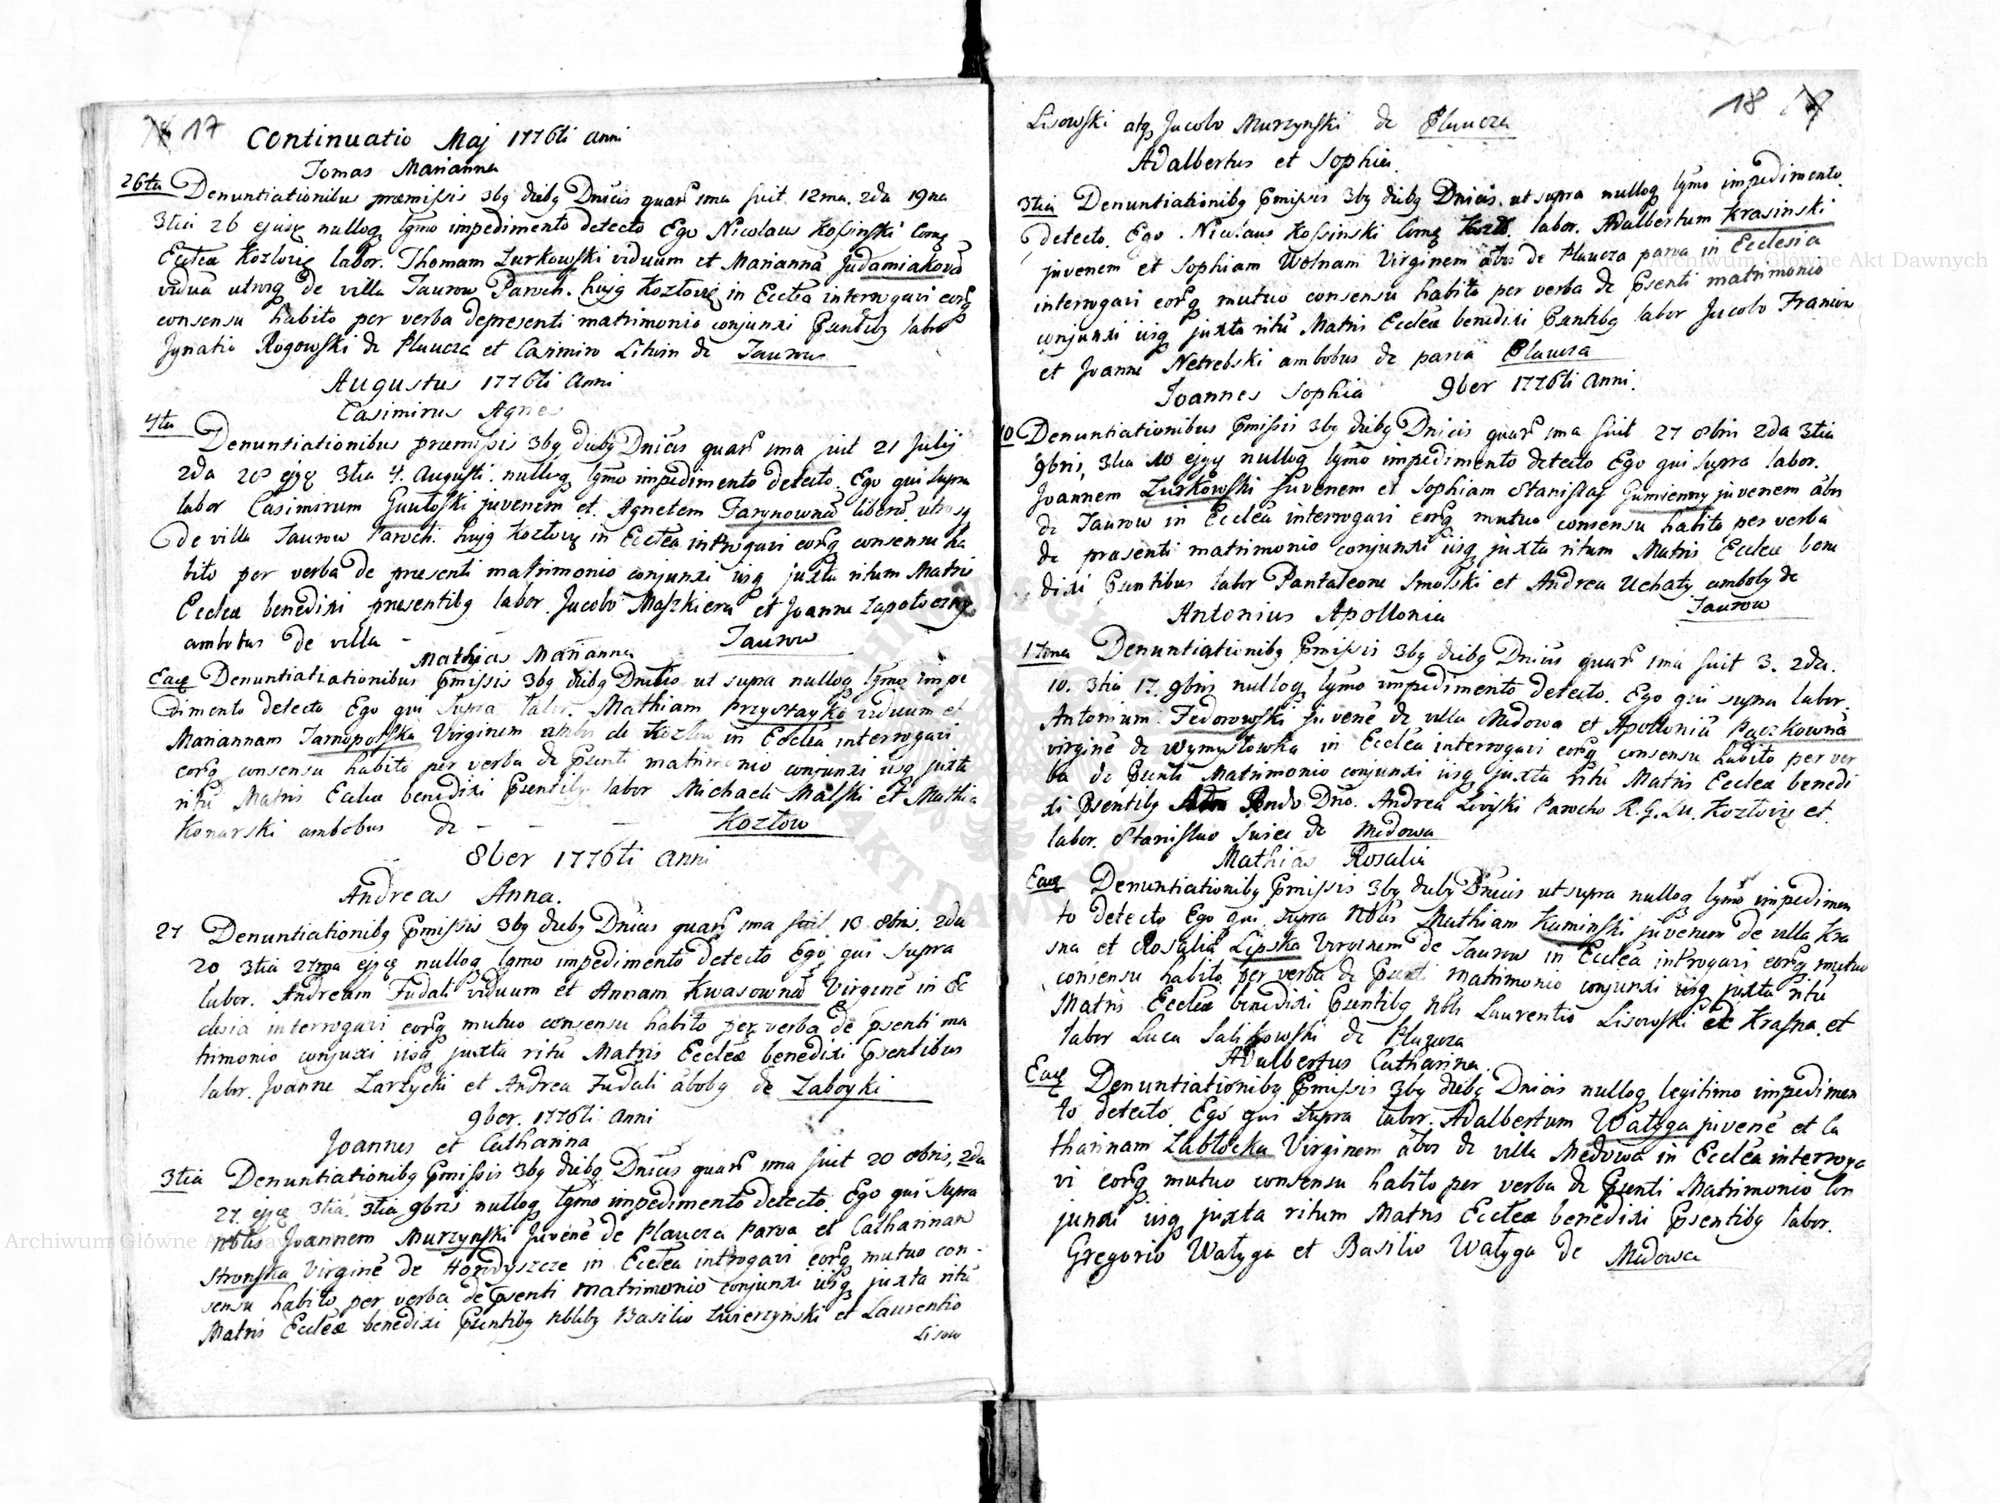 17
Continuatio Maj 1776ti Anni
Tomas Marianna
26ta Denuntiationibus præmissis 3bq diebq Dnicis quar 1ma fuit 12ma. 2da 19na
3tia 26 ejusq nulloq lgmo impedimento detecto Ego Nicolaus Kossinski Comq
Ecclea Kozłoviq labor. Thomam Zurkowski viduum et Marianna Judamiakova
vidua utrosq de villa Taurow Paroch. hujq Kozłoviq in Ecclea interrogavi eorq
consensu habito per verba depresenti matrimonio conjunxi Psentibq labor
Jgnatio Rogowski de Płaucza et Casimiro Litwin de Taurow
Augustus 1776ti Anni
Casimirus Agnes
4ta Denuntiationibus præmissis 3bq diebq Dnicis quar 1ma fuit 21 Julij
2da 28 ejqq 3tia 4. Augusti. nulloq lgmo impedimento detecto. Ego qui supra
labor Casimirum juvenem et Agnetem Farynowna libera utrosq
de villa Taurow Paroch. hujq Kozłoviq in Ecclea introgavi eorq consensu ha
bito per verba de presenti matrimonio conjunxi iisq juxta ritum Matris
Ecclea benedixi presentibq labor. Jacobo Maszkiera et Joanne Zapotoczny
ambobus de villa - Taurow
Mathias Marianna
Eaq Denuntiatiationibus Pmissis 3bq diebq Dnicis ut supra nulloq lgmo impe
dimento detecto Ego qui supra labor. Mathiam Przystayko viduum et
Mariannam Tarnopolska Virginem ambos de Kozłow in Ecclea interrogavi
eorq consensu habito per verba de Psenti matrimonio conjunxi iisq juxta
ritu Matris Ecclea benedixi Psentibq labor Michaele Malski et Mathia
Konarski ambobus de - - - Kozłow
8ber 1776ti Anni
Andreas Anna.
27 Denuntiationibq Pmissis 3bq diebq Dnicis quar 1ma fuit 13 8bris. 2da
20 3tia 27ma ejqq nulloq lgmo impedimento detecto Ego qui supra
labor. Andream Fudali viduum et Annam Kwasowna Virgine in Ec
clesia interrogavi eorq mutuo consensu habito per verba de Psenti ma
trimonio conjuxi iisq juxta ritu Matris Ecclea benedixi Psentibus
labor. Joanne Zarzycki et Andrea Fudali abobq de Zaboyki
9ber. 1776ti Anni
Joannes et Catharina
3tia Denuntiationibq Pmissis 3bq diebq Dnicis quar 1ma fuit 20 8bris, 2da
27. ejqq 3tia. 3tia 9bris nulloq lgmo impedimento detecto. Ego qui supra
Nbtis Joannem Murzynski Juvene de Płaucza Parva et Catharinam
Stronska Virgine de Horodyszcze in Ecclea introgavi eorq mutuo con-
sensu habito per verba de Psenti matrimonio conjunxi iisq juxta ritu
Matris Ecclea benedixi Psentibq Nblibq Basilio Zwierzynski et Laurentio
Lisow
18
Lisowski atq Jacobo Murzynski de Płaucza
Adalbertus et Sophia
3tia Denuntiationibq Pmissis 3bq diebq Dnicis. ut supra nulloq lgmo impedimento
detecto. Ego Nicolaus Kossinski Comq Kozł. labor. Adalbertum Krasinski
juvenem et Sophiam Wolnam Virginem abos de Płaucza parva in Ecclesia
interrogavi eorq mutuo consensu habito per verba de Psenti matrimonio
conjunxi iisq juxta ritu Matris Ecclea benedixi Psentibq labor Jacobo Franciw
et Joanne Netrebski ambobus de parva Płaucza
Joannes Sophia 9ber 1776ti Anni.
10 Denuntiationibus Pmissis 3bq diebq Dnicis quar 1ma fuit 27 8bris 2da 3tia
9bris, 3tia 10 ejqq nulloq lgmo impedimento detecto Ego qui supra labor.
Joannem Zurkowski Juvenem et Sophiam Stanislaq Gumienny juvenem abos
de Taurow in Ecclea interrogavi eorq mutuo consensu habito per verba
de præsenti matrimonio conjunxi iisq juxta ritum Matris Ecclea bene
dixi Psentibus labor Pantaleone Smolski et Andrea Uchaty ambobq de
Taurow
Antonius Apollonia
17ma Denuntiationibq Pmissis 3bq diebq Dnicis quar 1ma fuit 3. 2da.
10. 3tia 17. 9bris nulloq lgmo impedimento detecto. Ego qui supra labor.
Antonium Fedorowski Juvene de villa Medowa et Apollonia Paczkowna
virgine de Wymysłowka in Ecclea interrogavi eorq consensu habito per ver
ba de Psenti Matrimonio conjunxi iisq juxta ritu Matris Ecclea benedi
xi Psentibq Rndo Dno. Andrea Liviski Parocho R. G. Kozłoviq et
labor. Stanislao de Medowa
Mathias Rosalia
Eaq Denuntiationibq Pmissis 3bq diebq Dnicis ut supra nulloq lgmo impedimen
to detecto Ego qui supra Nblis Mathiam Kaminski juvenem de villa Kra
sna et Rosalia Lipska Virginem de Taurow in Ecclea introgavi eorq mutuo
consensu habito per verba de Psenti matrimonio conjunxi iisq juxta ritu
Matris Ecclea benedixi Psentibq Nbli Laurentio Lisowski de Krasna et
labor Luca Salikowski de Płaucza
Adalbertus Catharina
Eaq Denuntiationibq Pmissis 3bq diebq Dnicis nulloq legitimo impedimen
to detecto. Ego qui supra labor. Adalbertum Wałyga juvene et Ca
tharinam Zabłocka Virginem abos de villa Medowa in Ecclea interroga
vi eorq mutuo consensu habito per verba de Psenti Matrimonio Con
junxi iisq juxta ritum Matris Ecclea benedixi Psentibq labor.
Gregorio Wałyga et Basilio Wałyga de Medowa
Archiwum Główne Akt Dawnych
Archiwum Główne Akt Dawnych